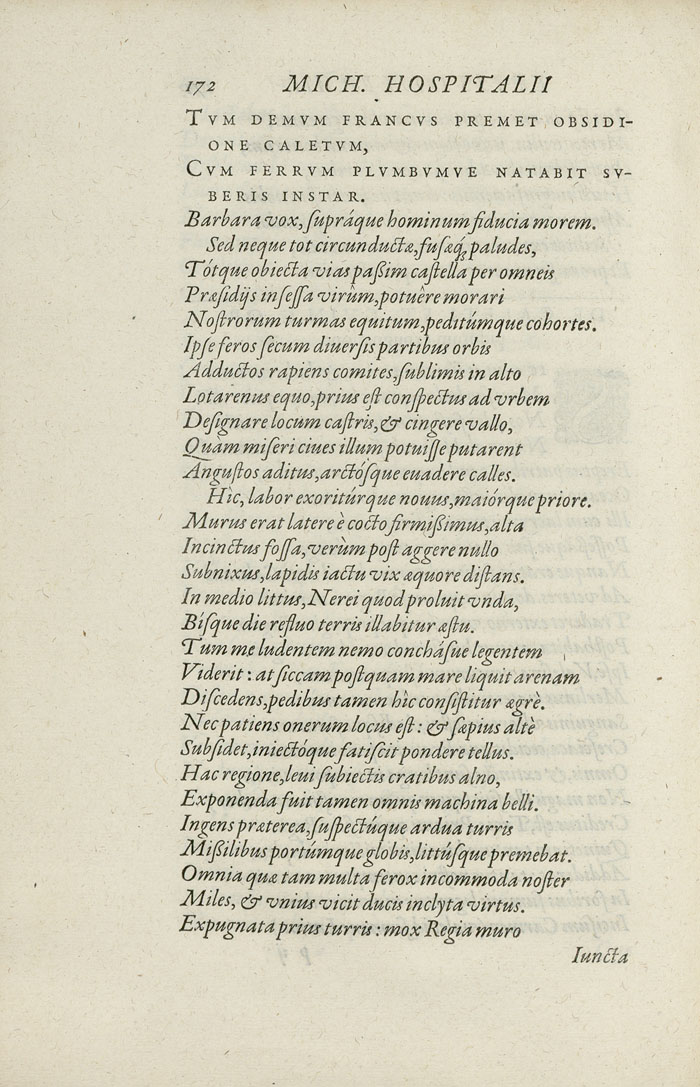 172 MICH. HOSPITALII
TVM DEMVM FRANCVS PREMET OBSIDI-
ONE CALETVM,
CVM FERRVM PLVMBVMVE NATABIT SV-
BERIS INSTAR.
Barbara vox, ſupráque hominum fiducia morem.
Sed neque tot circunductæ, fuſæq́; paludes,
Tótque obiecta vias paßim caſtella per omneis
Præſidijs inſeſſa virûm, potuêre morari
Noſtrorum turmas equitum, peditúmque cohortes.
Ipſe feros ſecum diuerſis partibus orbis
Adductos rapiens comites, ſublimis in alto
Lotarenus equo, prius eſt conſpectus ad vrbem
Deſignare locum caſtris, & cingere vallo,
Quàm miſeri ciues illum potuiſſe putarent
Anguſtos aditus, arctóſque euadere calles.
Hîc, labor exoritúrque nouus, maiórque priore.
Murus erat latere è cocto firmißimus, alta
Incinctus foſſa, verùm poſt aggere nullo
Subnixus, lapidis iactu vix æquore diſtans.
In medio littus, Nerei quod proluit vnda,
Biſque die refluo terris illabitur æſtu.
Tum me ludentem nemo concháſue legentem
Viderit : at ſiccam poſtquam mare liquit arenam
Diſcedens, pedibus tamen hîc conſiſtitur ægrè.
Nec patiens onerum locus eſt : & ſæpius altè
Subſidet, iniectóque fatiſcit pondere tellus.
Hac regione, leui ſubiectis cratibus alno,
Exponenda fuit tamen omnis machina belli.
Ingens præterea, ſuſpectúque ardua turris
Mißilibus portúmque globis, littúſque premebat.
Omnia quæ tam multa ferox incommoda noſter
Miles, & vnius vicit ducis inclyta virtus.
Expugnata prius turris : mox Regia muro
Iuncta